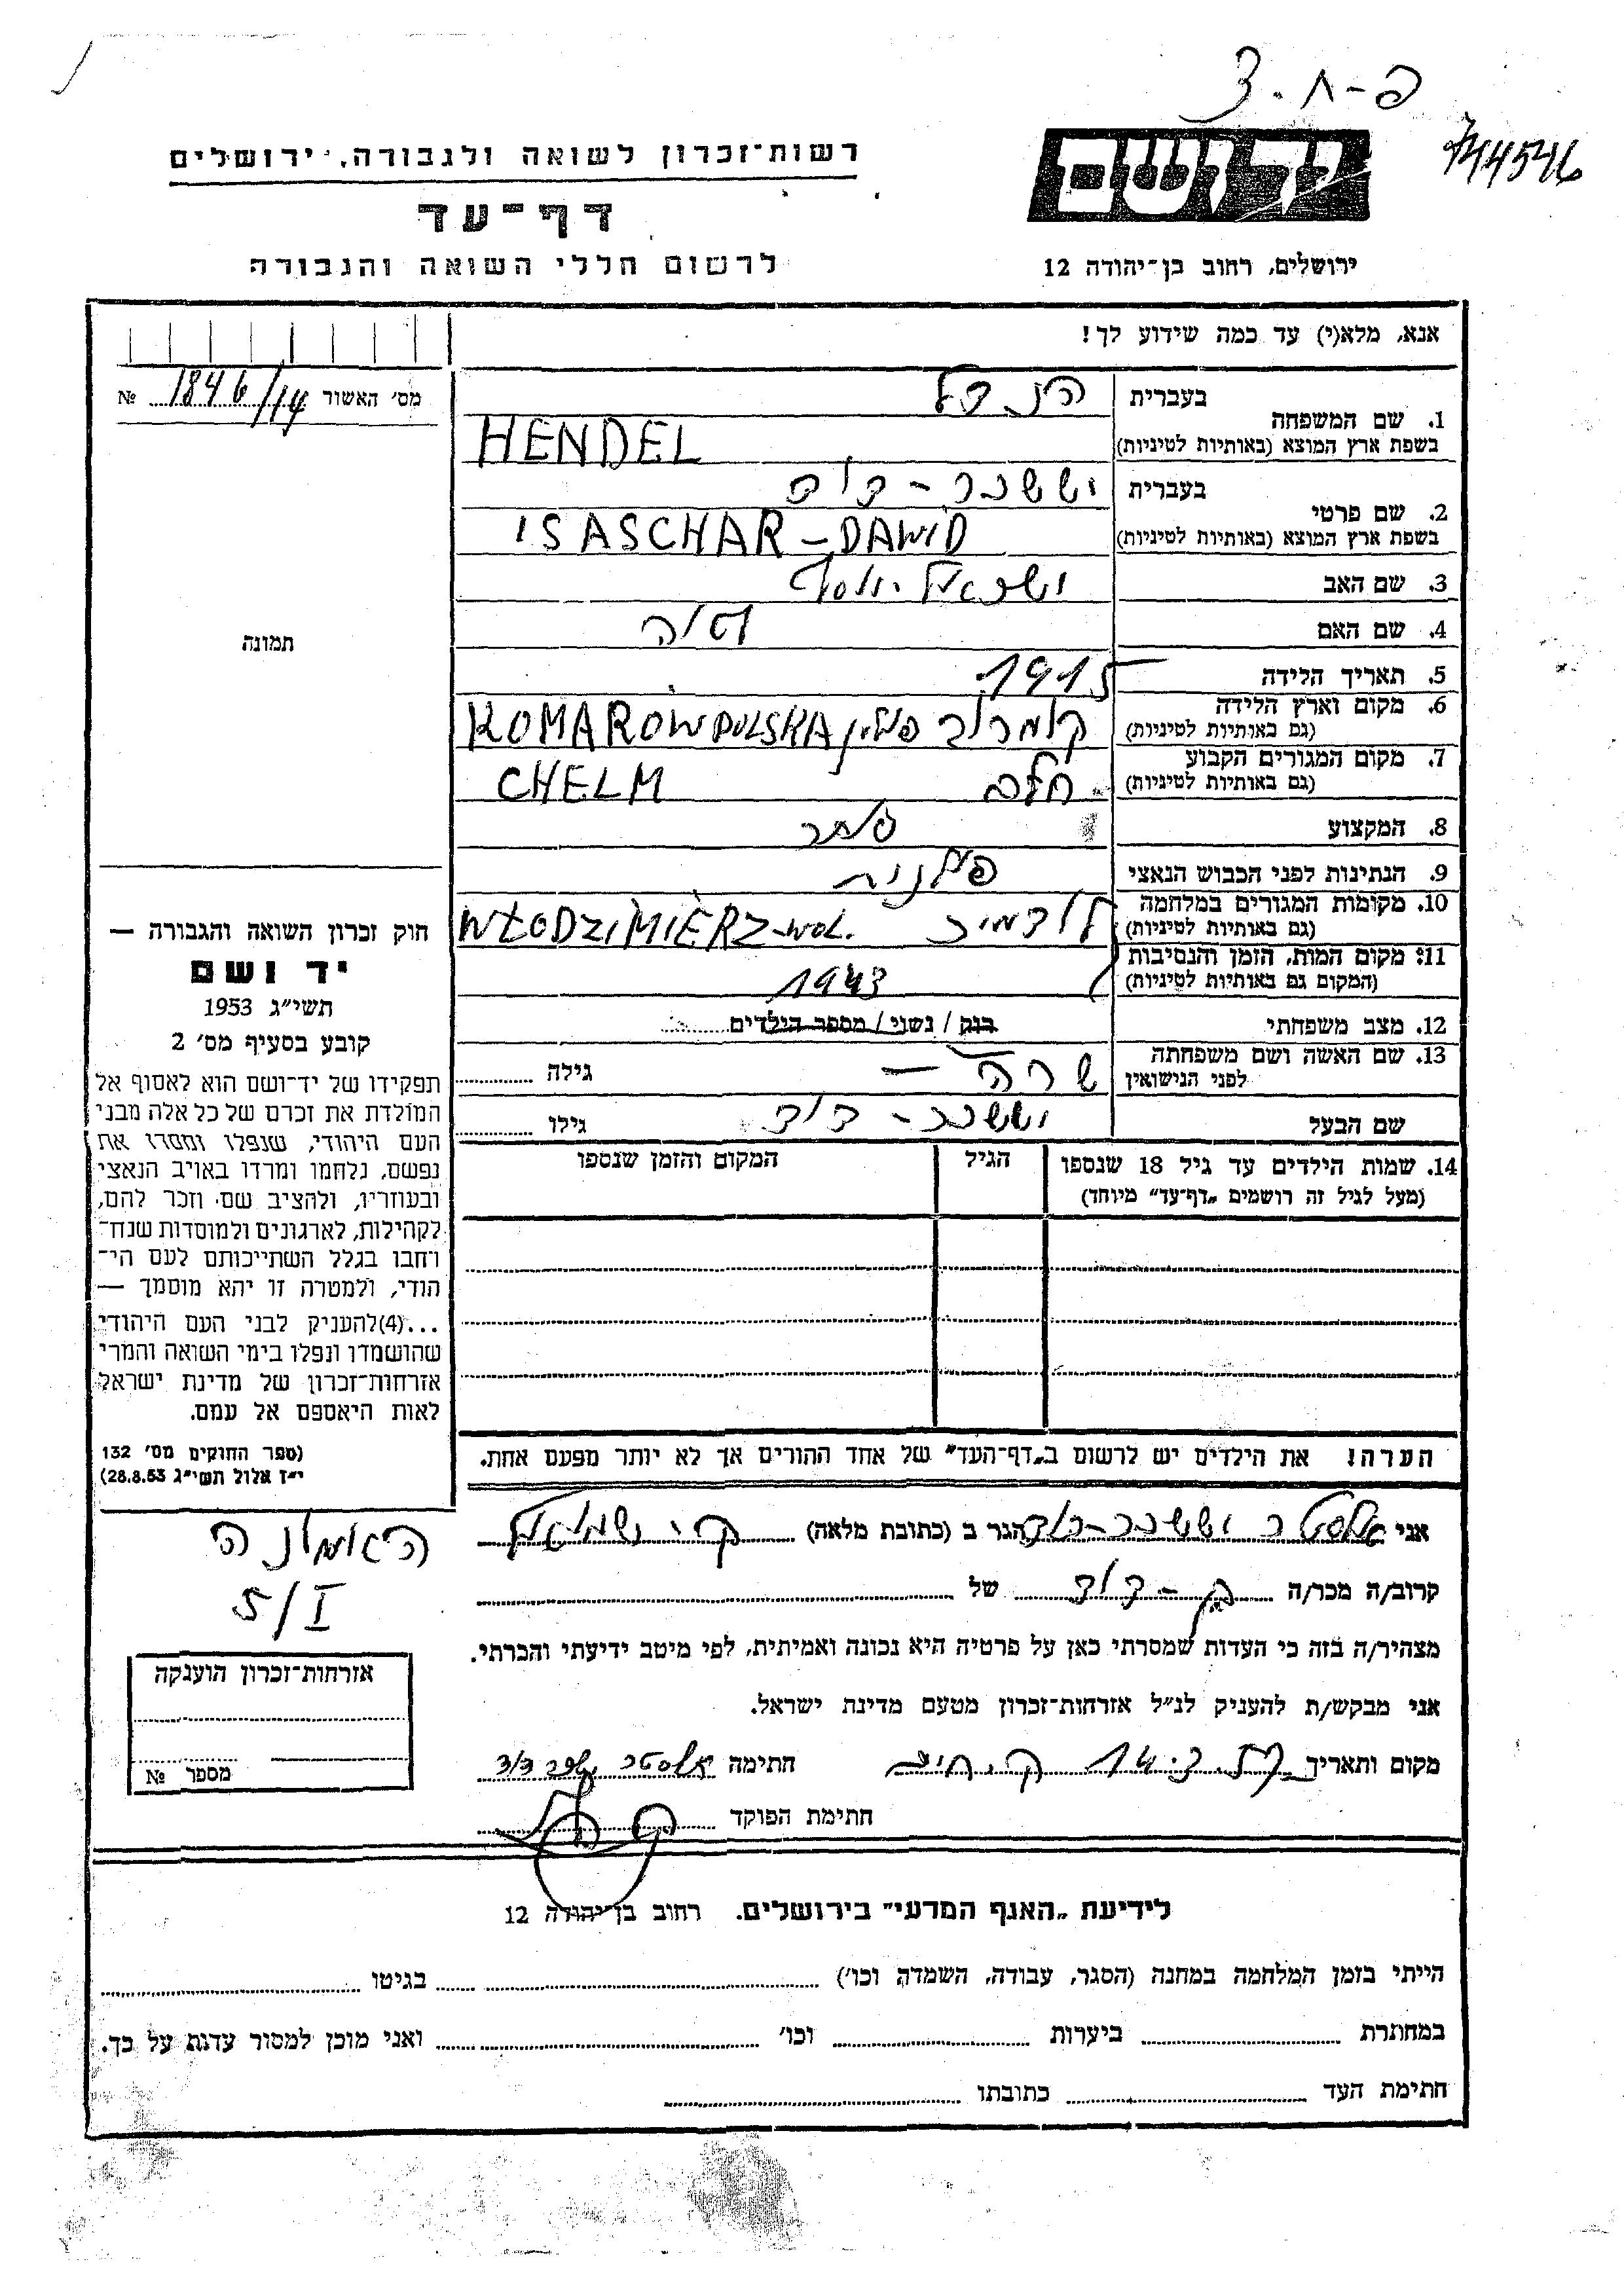 פ-ח.3
744546
יד ושם
רשות־זכרון לשואה ולגבורה, ירושלים
דף־עד
לרשום חללי השואה והגבורה
ירושלים, רחוב בן־יהודה 12
אנא, מלא(י) עד כמה שידוע לך!
מס׳ האשור 1846/14 №
תמונה
1. שם המשפחה
בעברית הנדל
בשפת ארץ המוצא (באותיות לטיניות) HENDEL
2. שם פרטי
בעברית יששכר - דוד
בשפת ארץ המוצא (באותיות לטיניות) ISASCHAR - DAWID
3. שם האב ישראל יוסף
4. שם האם
5. תאריך הלידה 1915
6. מקום וארץ הלידה קומרוב פולין KOMAROW POLSKA
(גם באותיות לטיניות)
7. מקום המגורים הקבוע חלם CHELM
(גם באותיות לטיניות)
8. המקצוע סוחר
9. הנתינות לפני הכבוש הנאצי פולנית
10. מקומות המגורים במלחמה לודמיר WŁODZIMIERZ-WOL.
(גם באותיות לטיניות)
11. מקום המות, הזמן והנסיבות 1943
(המקום גם באותיות לטיניות)
12. מצב משפחתי רוק / נשוי / מספר הילדים
13. שם האשה ושם משפחתה שרה — גילה
לפני הנישואין
שם הבעל יששכר - דוד גילו
14. שמות הילדים עד גיל 18 שנספו הגיל המקום והזמן שנספו
(מעל לגיל זה רושמים „דף־עד״ מיוחד)
הערה! את הילדים יש לרשום ב„דף־העד״ של אחד ההורים אך לא יותר מפעם אחת.
חוק זכרון השואה והגבורה —
יד ושם
תשי״ג 1953
קובע בסעיף מס׳ 2
תפקידו של יד־ושם הוא לאסוף אל
המולדת את זכרם של כל אלה מבני
העם היהודי, שנפלו ומסרו את
נפשם, נלחמו ומרדו באויב הנאצי
ובעוזריו, ולהציב שם וזכר להם,
לקהילות, לארגונים ולמוסדות שנח־
רבו בגלל השתייכותם לעם הי־
הודי, ולמטרה זו יהא מוסמך —
...(4)להעניק לבני העם היהודי
שהושמדו ונפלו בימי השואה והמרי
אזרחות־זכרון של מדינת ישראל
לאות היאספם אל עמם.
(ספר החוקים מס׳ 132
י״ז אלול תשי״ג 28.8.53)
אני אלסטר יששכר - דוד הגר ב (כתובת מלאה) ק. שמואל
האמונה
5/I
קרוב/ה מכר/ה בן - דוד של
מצהיר/ה בזה כי העדות שמסרתי כאן על פרטיה היא נכונה ואמיתית, לפי מיטב ידיעתי והכרתי.
אני מבקש/ת להעניק לנ״ל אזרחות־זכרון מטעם מדינת ישראל.
מקום ותאריך ק. חיים חתימה אלסטר
חתימת הפוקד
אזרחות־זכרון הוענקה
מספר №
לידיעת „האגף המדעי״ בירושלים. רחוב בן־יהודה 12
הייתי בזמן המלחמה במחנה (הסגר, עבודה, השמדה וכו׳) בגיטו
במחתרת ביערות וכו׳ ואני מוכן למסור עדות על כך.
חתימת העד כתובתו